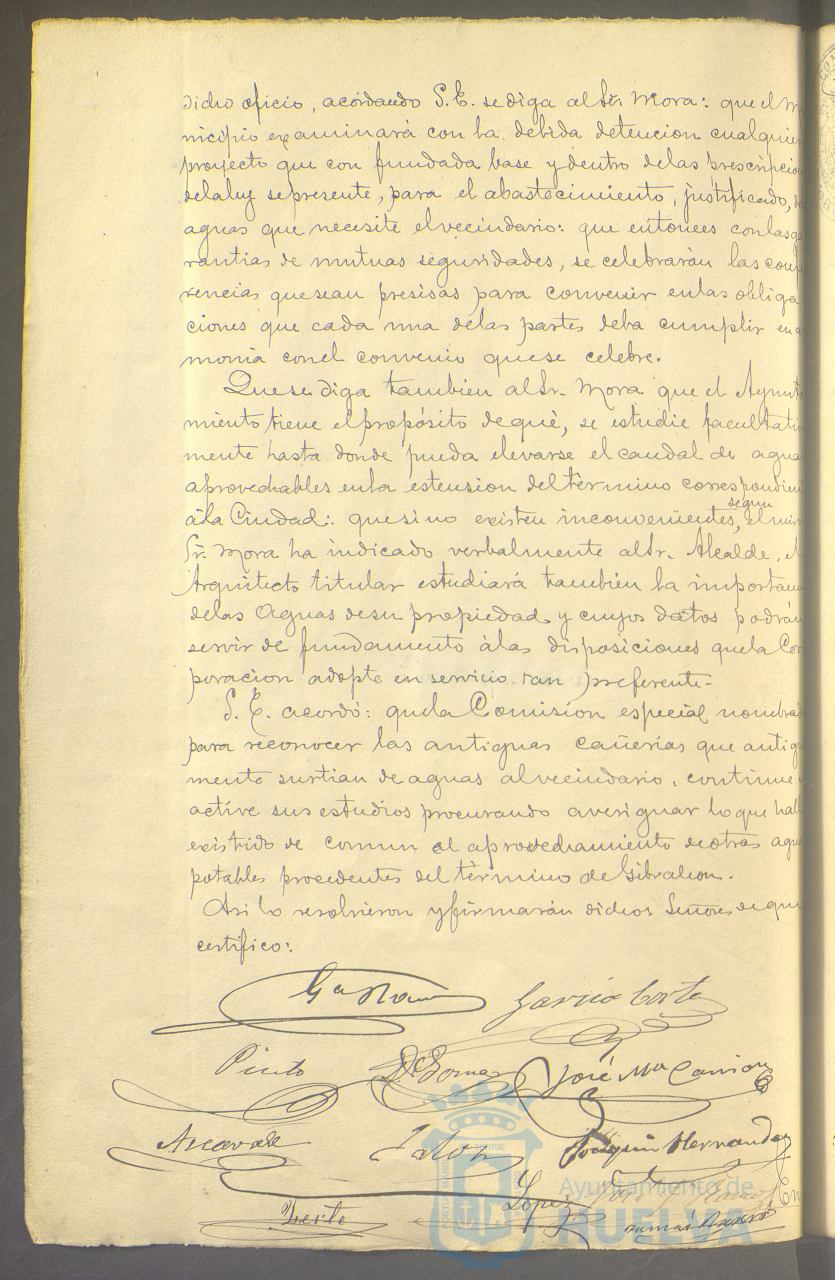 dicho oficio, acordando S.E. se diga al Sr. Mora: que el Mu
nicipio examinará con la debida detencion cualquier
proyecto que con fundada base y dentro de las prescripcio
de la ley se presente, para el abastecimiento, justificado, de
aguas que necesite el vecindario: que entonces con las ga
rantias de mutuas seguridades, se celebrarán las confe
rencias que sean presisas para convenir en las obliga
ciones que cada una de las partes deba cumplir en a
monia con el convenio que se celebre.
Que se diga tambien al Sr. Mora que el Ayunta
miento tiene el propósito de qué, se estudie facultati
mente hasta donde pueda elevarse el caudal de agua
aprovechables en la estension del término correspondien
á la Ciudad: que si no existen inconvenientes, según el mis
Sr. Mora ha indicado verbalmente al Sr. Alcalde, el
Arquitecto titular estudiará tambien la importan
de las Aguas de su propiedad y cuyos datos podrán
servir de fundamento á las disposiciones que la Cor
poracion adopte en servicio tan preferente.
S. E. acordó: que la Comision especial nombrad
para reconocer las antiguas cañerias que antig
mente surtian de aguas al vecindario, continue y
active sus estudios procurando averiguar lo que hall
existido de comun el aprovechamiento de otras agua
potables procedentes del término de Gibraleon.
Asi lo resolvieron y firmarán dichos Señores de que
certifico:
García Cortes
Pinto D. Gomez José Mª Carrion
Joaquin Hernandez
Lopez
Ayuntamiento de
HUELVA